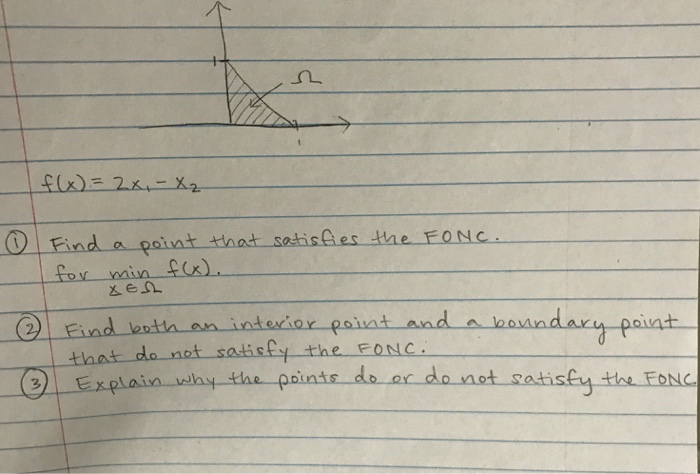 1
Ω
1
f(x) = 2x₁ - x₂
① Find a point that satisfies the FONC.
for min f(x).
x ∈ Ω
② Find both an interior point and a boundary point
that do not satisfy the FONC.
③ Explain why the points do or do not satisfy the FONC